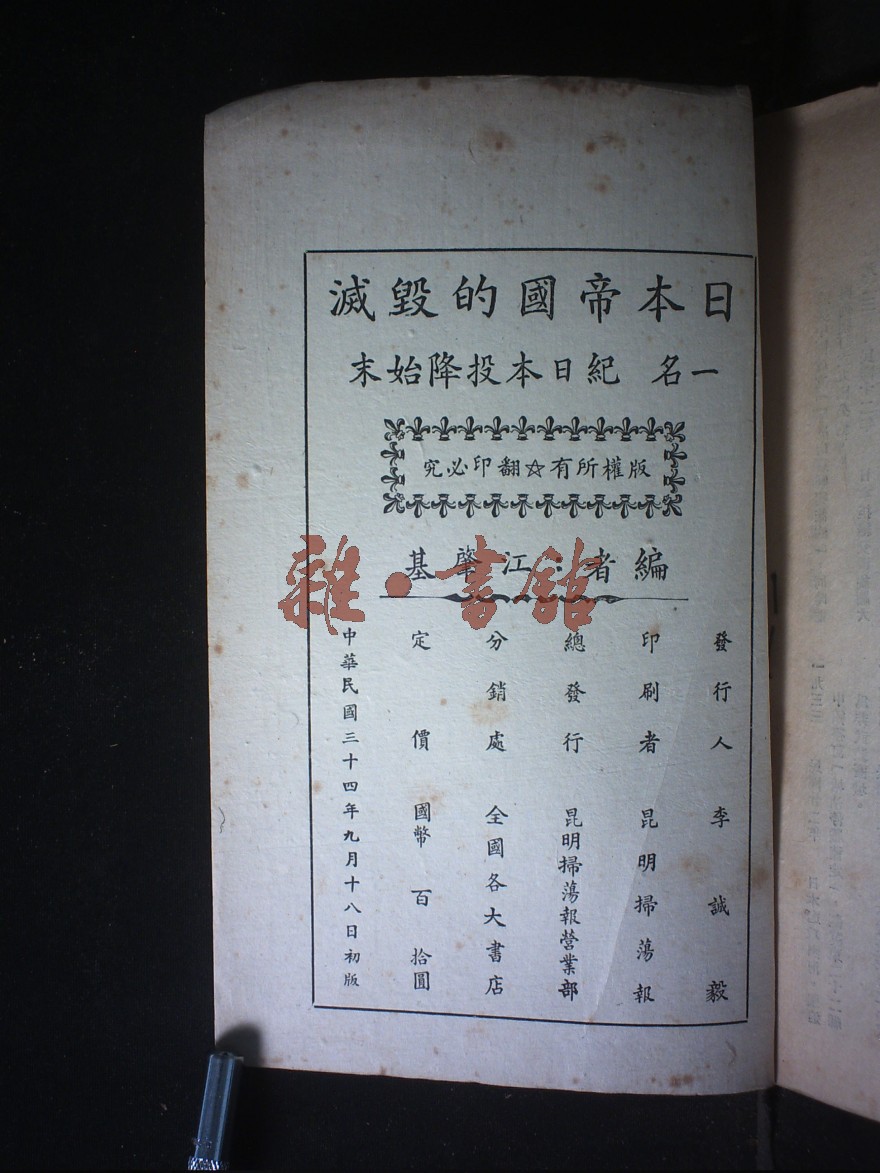 日本帝國的毀滅
一名 紀日本投降始末
版權所有☆翻印必究
編者：江肇基
發行人 李誠毅
印刷者 昆明掃蕩報
總發行 昆明掃蕩報營業部
分銷處 全國各大書店
定價 國幣 百 拾圓
中華民國三十四年九月十八日初版
雜·書館